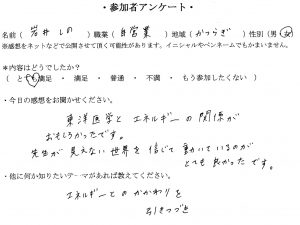 ・参加者アンケート・
名前（岩井しの）職業（自営業）地域（かつらぎ）性別（男・女）
※感想をネットなどで公開させて頂く可能性があります。イニシャルやペンネームでもかまいません。
＊内容はどうでしたか？
（ とても満足 ・ 満足 ・ 普通 ・ 不満 ・ もう参加したくない ）
・今日の感想をお聞かせください。
東洋医学とエネルギーの関係が
おもしろかったです。
先生が見えない世界を信じて動いているのが
とても良かったです。
・他に何か知りたいテーマがあれば教えてください。
エネルギーとのかかわりを
引きつづき